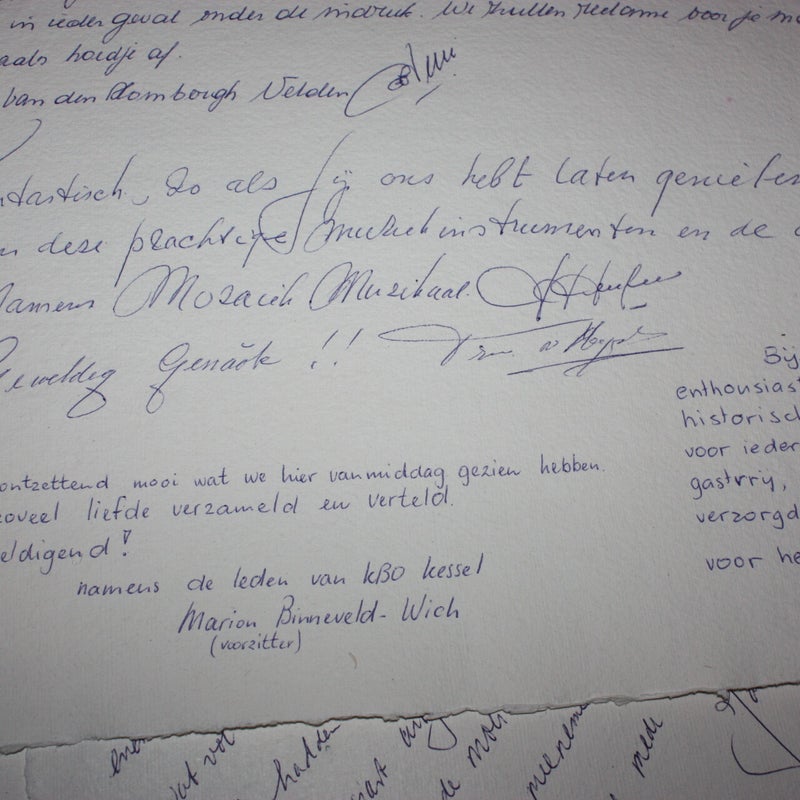 in ieder geval onder de indruk. We zullen reclame voor je ma
aals hoedje af.
van den Hombergh Velden
ntastisch, zo als jij ons hebt laten genieten
n deze prachtige muziekinstrumenten en de
Namens Mozaiek Muzikaal.
Geweldig Genäòk !!
ontzettend mooi wat we hier vanmiddag gezien hebben.
zoveel liefde verzameld en verteld.
eldigend!
namens de leden van KBO Kessel
Marion Binneveld-Wich
(voorzitter)
Bij
enthousiast
historisch
voor ieder
gastvrij,
verzorgd
voor he
at vol hadden
de
meeneme
mede